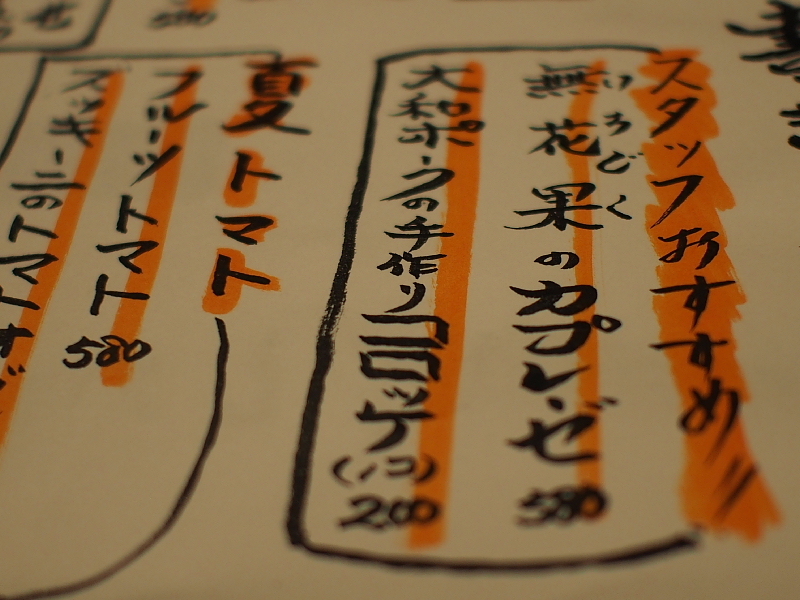 スタッフおすすめ!!
いちじく
無花果のカプレーゼ 580
大和ポークの手作りコロッケ(1コ) 200
夏トマト
フルーツトマト 580
ズッキーニのトマトオ
580